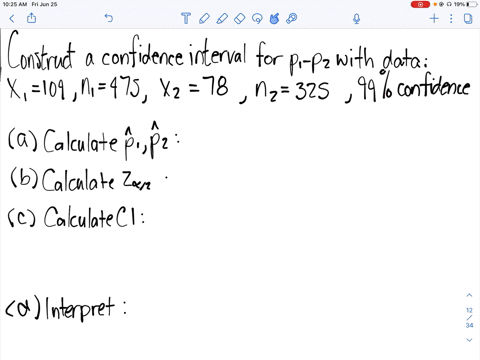 10:25 AM Fri Jun 25
19%
Construct a confidence interval for p₁-p₂ with data:
X₁=109, n₁=475, X₂=78, n₂=325, 99% confidence
(a) Calculate p̂₁, p̂₂:
(b) Calculate Zα/2
(c) Calculate CI:
(d) Interpret:
12
/
34